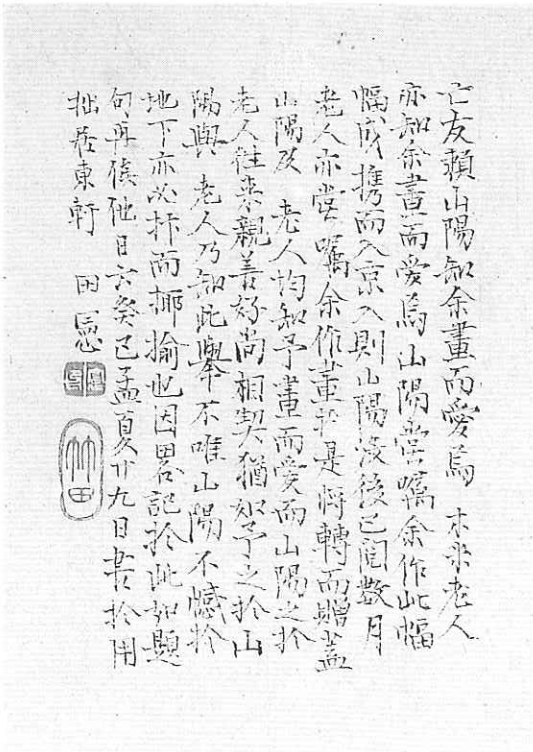 亡友頼山陽知余畫而愛焉 木米老人
亦知余畫而愛焉山陽嘗嘱余作此幅
幅成携而入京入則山陽没後已閲数月
老人亦嘗嘱余作畫於是将轉而贈蓋
山陽及 老人均知予畫而愛而山陽之於
老人往来親善好尚相契猶如予之於山
陽與 老人乃知此擧不唯山陽不憾於
地下亦必抃而揶揄也因畧記於此如題
句再俟他日云癸巳孟夏廿九日書於用
拙居東軒 田憲
竹田